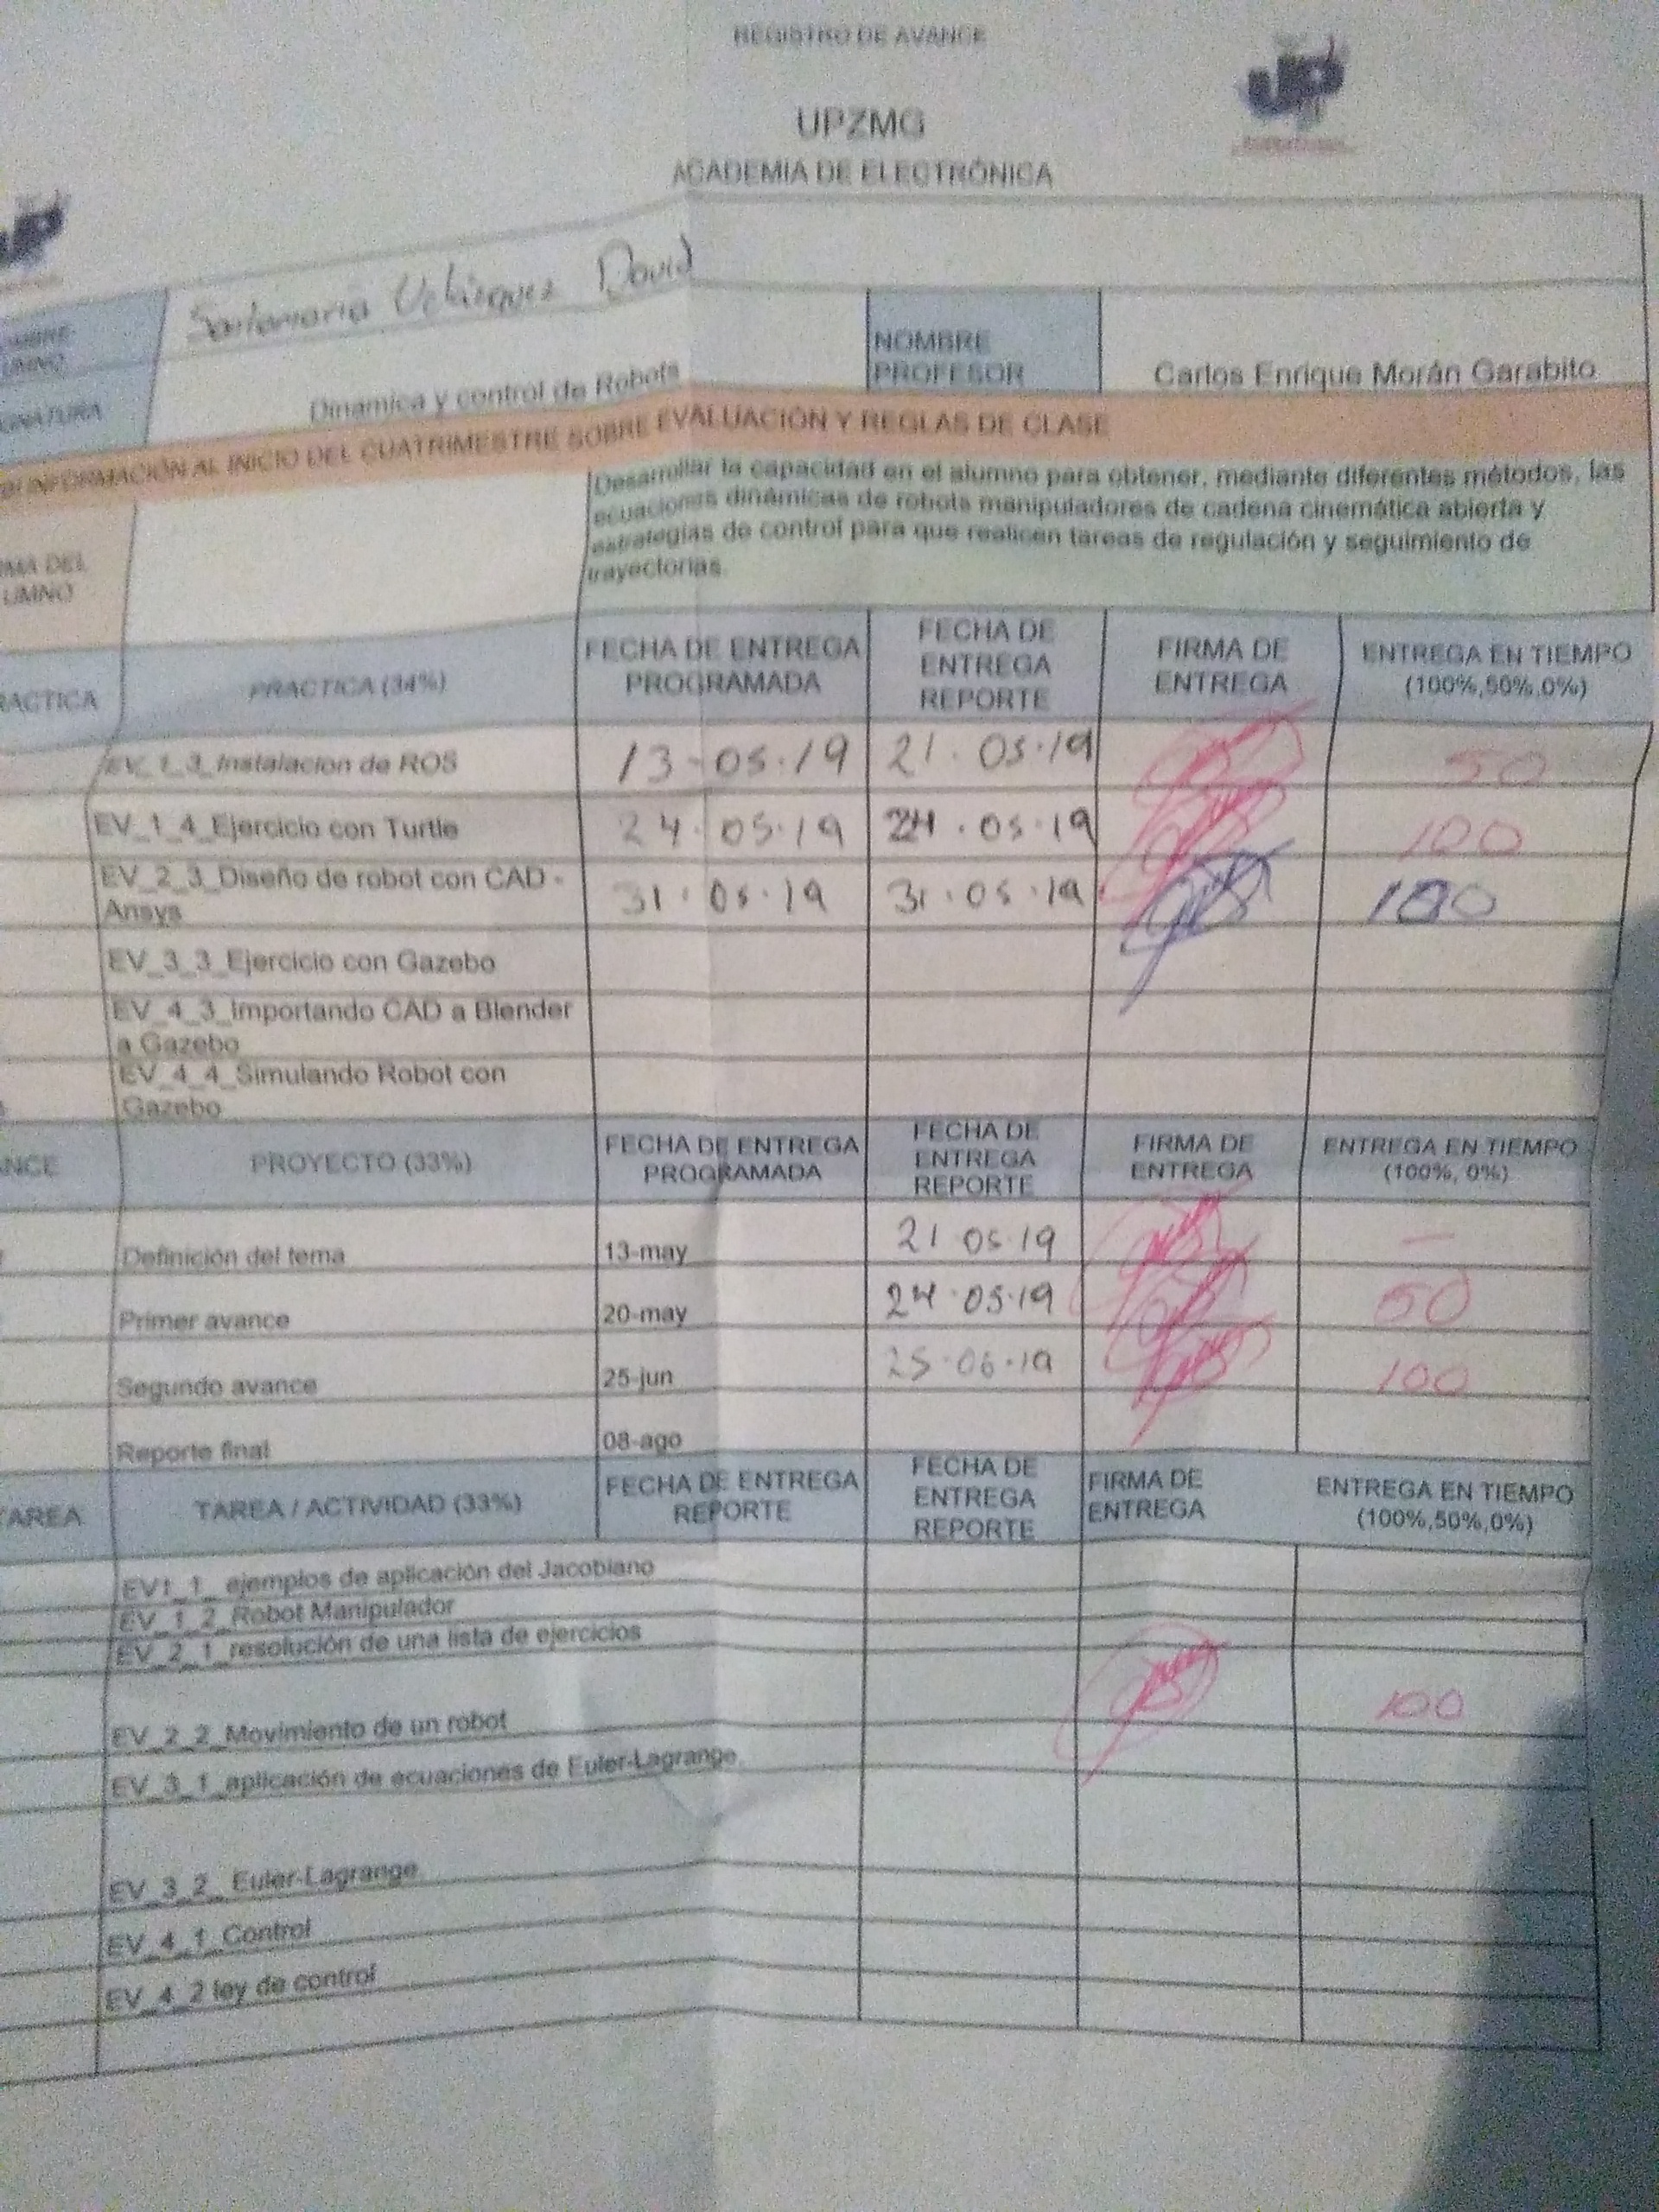 REGISTRO DE AVANCE
UPZMG
ACADEMIA DE ELECTRÓNICA
UP
UP
Santamaria Velázquez David
NOMBRE PROFESOR
Carlos Enrique Morán Garabito
Dinamica y control de Robots
INFORMACIÓN AL INICIO DEL CUATRIMESTRE SOBRE EVALUACIÓN Y REGLAS DE CLASE
Desarrollar la capacidad en el alumno para obtener, mediante diferentes métodos, las
ecuaciones dinámicas de robots manipuladores de cadena cinemática abierta y
estrategias de control para que realicen tareas de regulación y seguimiento de
trayectorias.
MA DEL
UMNO
RACTICA PRACTICA (34%) FECHA DE ENTREGA PROGRAMADA FECHA DE ENTREGA REPORTE FIRMA DE ENTREGA ENTREGA EN TIEMPO (100%,50%,0%)
EV_1_3_Instalacion de ROS 13-05-19 21.05.19 50
EV_1_4_Ejercicio con Turtle 24.05.19 24.05.19 100
EV_2_3_Diseño de robot con CAD - Ansys 31.05.19 31.05.19 100
EV_3_3_Ejercicio con Gazebo
EV_4_3_Importando CAD a Blender a Gazebo
EV_4_4_Simulando Robot con Gazebo
ANCE PROYECTO (33%) FECHA DE ENTREGA PROGRAMADA FECHA DE ENTREGA REPORTE FIRMA DE ENTREGA ENTREGA EN TIEMPO (100%, 0%)
Definición del tema 13-may 21 05 19 —
Primer avance 20-may 24.05.19 50
Segundo avance 25-jun 25.06.19 100
Reporte final 08-ago
TAREA TAREA / ACTIVIDAD (33%) FECHA DE ENTREGA REPORTE FECHA DE ENTREGA REPORTE FIRMA DE ENTREGA ENTREGA EN TIEMPO (100%,50%,0%)
EV1_1_ ejemplos de aplicación del Jacobiano
EV_1_2_Robot Manipulador
EV_2_1_resolución de una lista de ejercicios
EV_2_2_Movimiento de un robot 100
EV_3_1_aplicación de ecuaciones de Euler-Lagrange.
EV_3_2_ Euler-Lagrange.
EV_4_1_Control
EV_4_2 ley de control